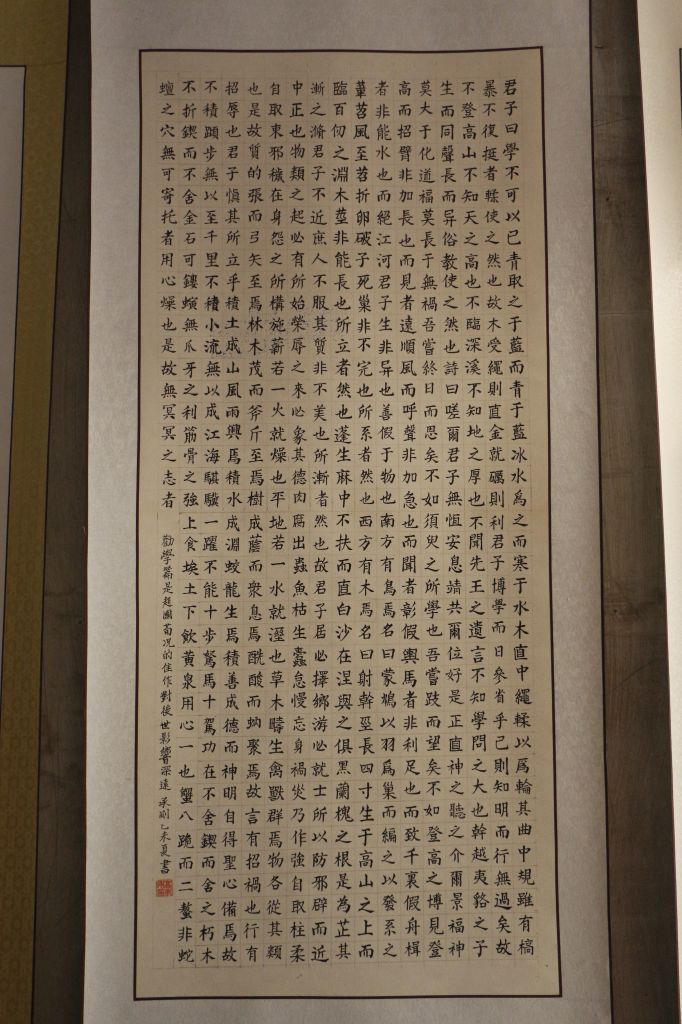 君子曰學不可以已青取之于藍而青于藍冰水為之而寒于水木直中繩輮以為輪其曲中規雖有槁
暴不復挺者輮使之然也故木受繩則直金就礪則利君子博學而日參省乎己則知明而行無過矣故
不登高山不知天之高也不臨深溪不知地之厚也不聞先王之遺言不知學問之大也幹越夷貉之子
生而同聲長而异俗教使之然也詩曰嗟爾君子無恆安息靖共爾位好是正直神之聽之介爾景福神
莫大于化道福莫長于無禍吾嘗終日而思矣不如須臾之所學也吾嘗跂而望矣不如登高之博見登
高而招臂非加長也而見者遠順風而呼聲非加急也而聞者彰假輿馬者非利足也而致千裏假舟楫
者非能水也而絕江河君子生非异也善假于物也南方有鳥焉名曰蒙鳩以羽為巢而編之以發系之
葦苕風至苕折卵破子死巢非不完也所系者然也西方有木焉名曰射幹莖長四寸生于高山之上而
臨百仞之淵木莖非能長也所立者然也蓬生麻中不扶而直白沙在涅與之俱黑蘭槐之根是為芷其
漸之滫君子不近庶人不服其質非不美也所漸者然也故君子居必擇鄉游必就士所以防邪辟而近
中正也物類之起必有所始榮辱之來必象其德肉腐出蟲魚枯生蠹怠慢忘身禍災乃作強自取柱柔
自取束邪穢在身怨之所構施薪若一火就燥也平地若一水就溼也草木疇生禽獸群焉物各從其類
也是故質的張而弓矢至焉林木茂而斧斤至焉樹成蔭而衆息焉酰酸而蚋聚焉故言有招禍也行有
招辱也君子慎其所立乎積土成山風雨興焉積水成淵蛟龍生焉積善成德而神明自得聖心備焉故
不積蹞步無以至千里不積小流無以成江海騏驥一躍不能十步駑馬十駕功在不舍鍥而舍之朽木
不折鍥而不舍金石可鏤螾無爪牙之利筋骨之強上食埃土下飲黃泉用心一也蟹八跪而二螯非蛇
蟺之穴無可寄托者用心燥也是故無冥冥之志者
勸學篇是趙國荀況的佳作對後世影響深遠 承剛乙未夏書